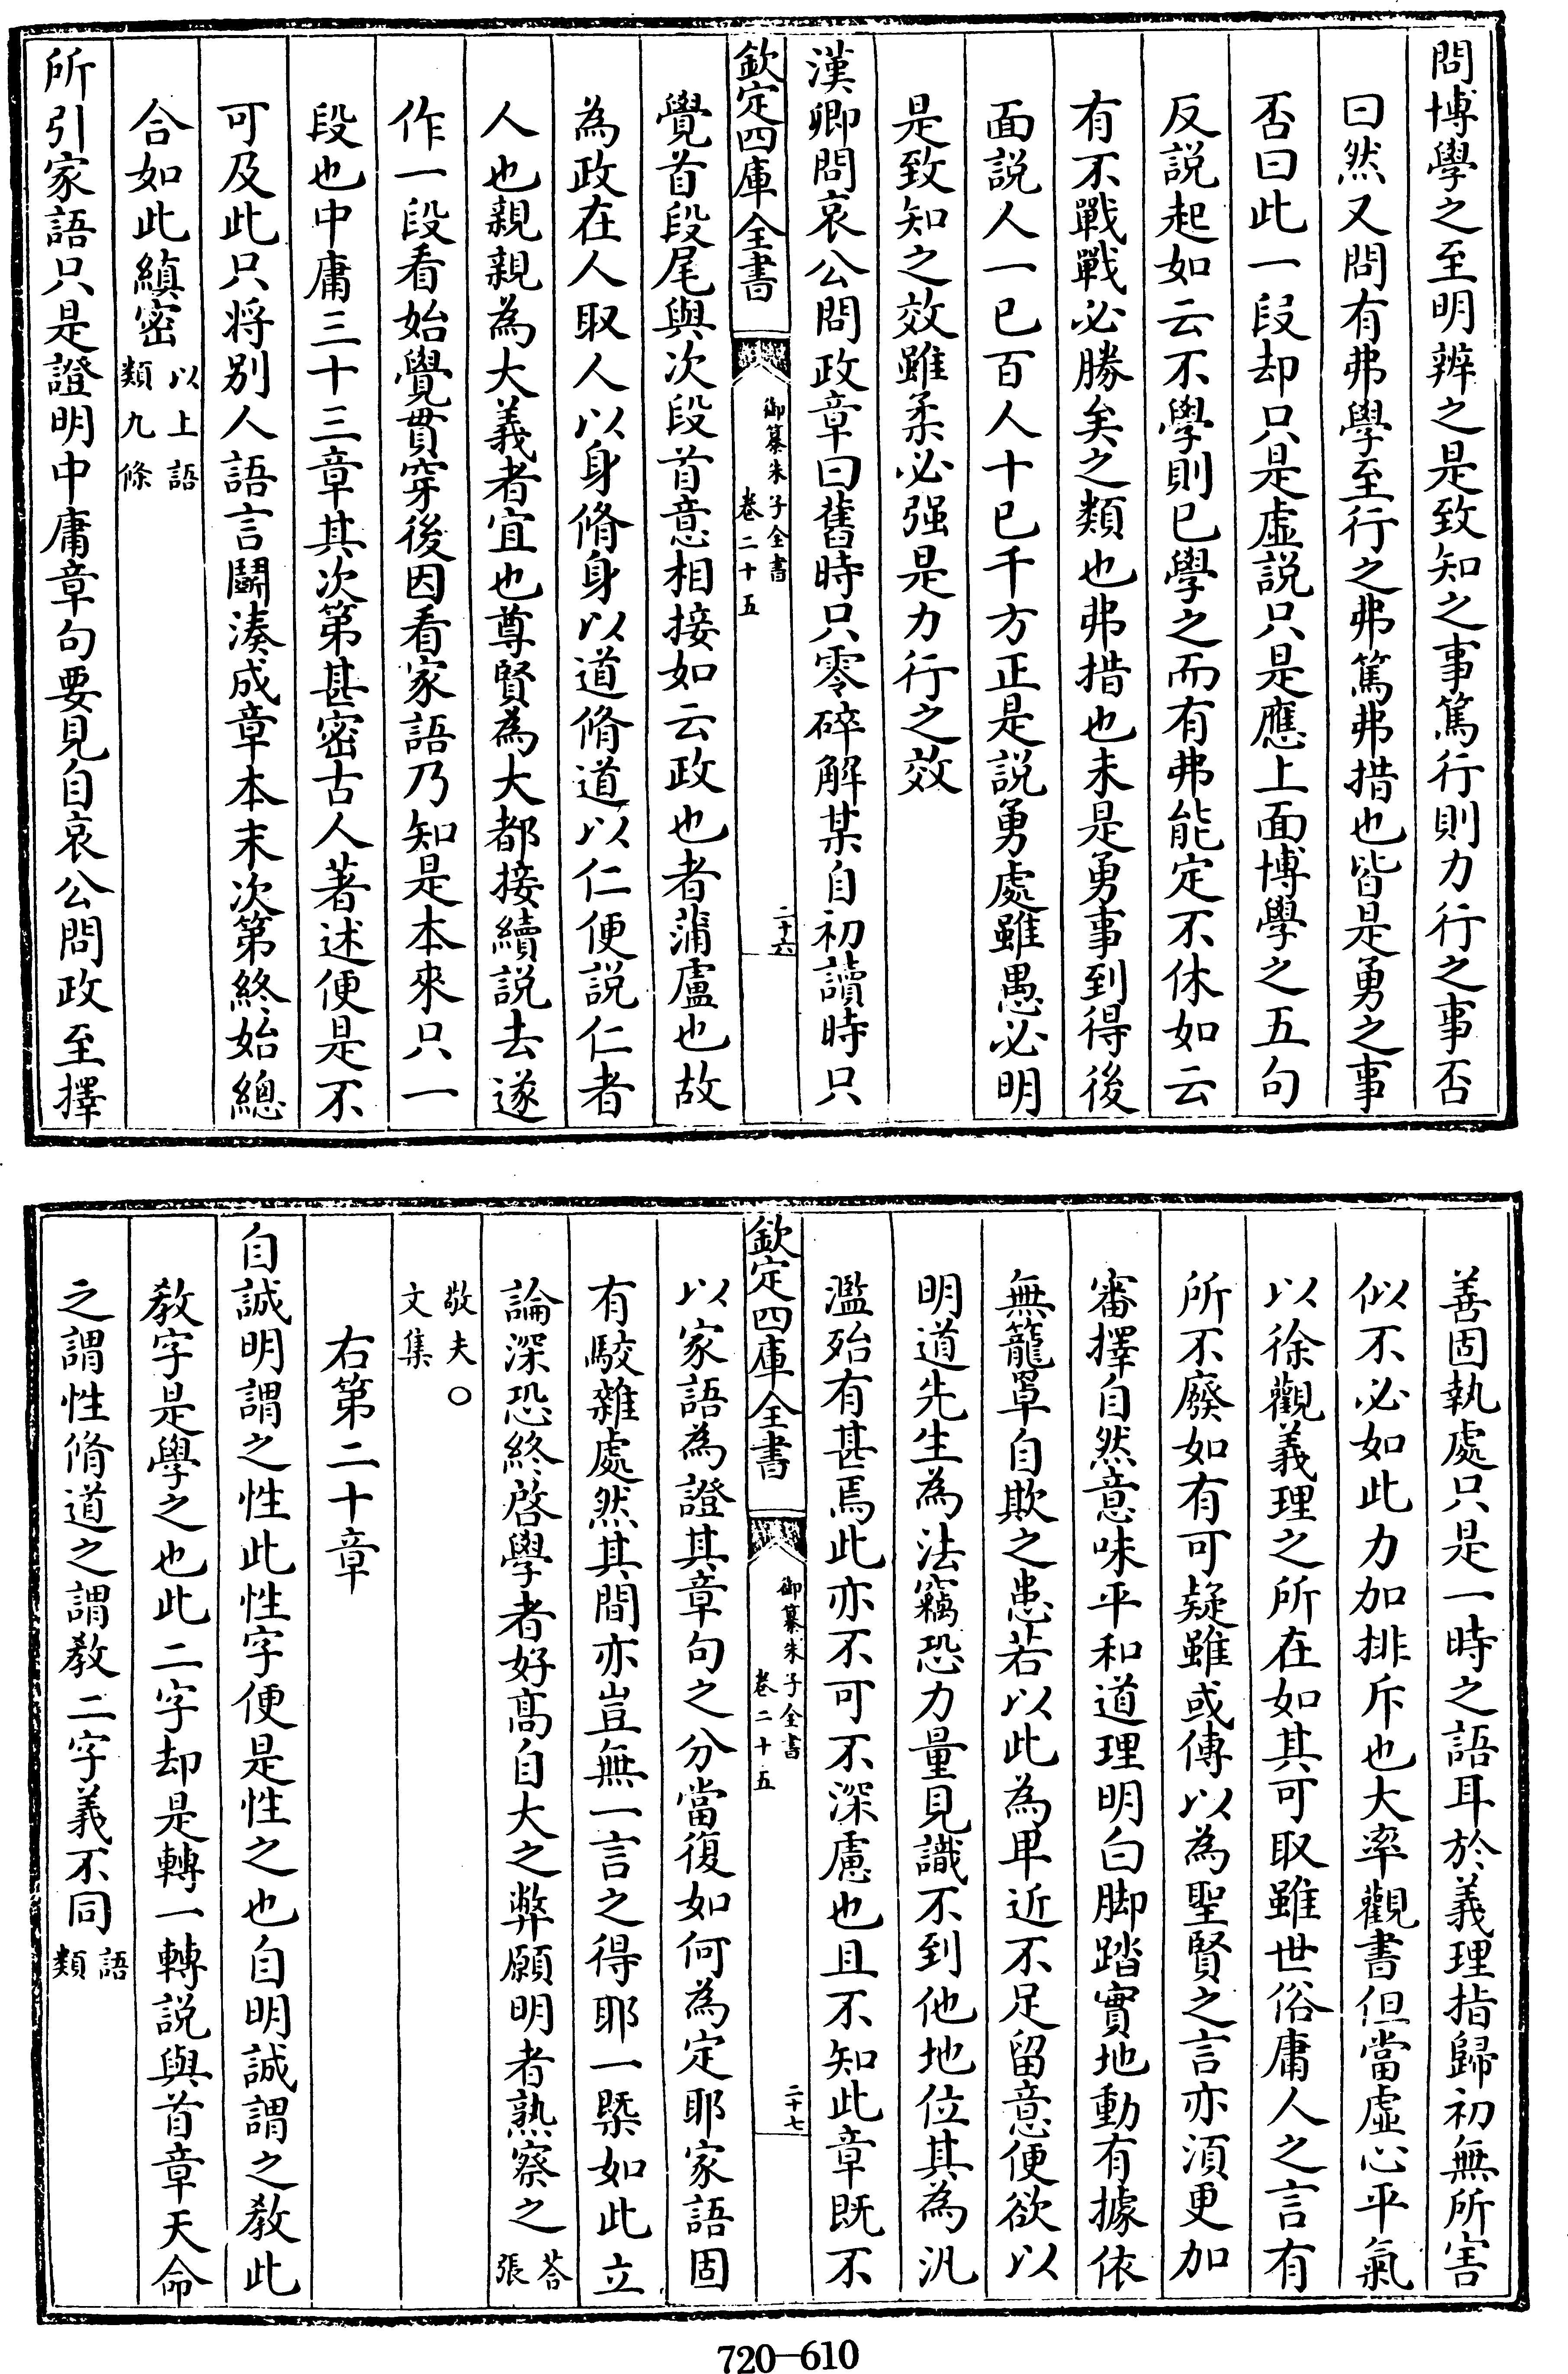 問博學之至明辨之是致知之事篤行則力行之事否
曰然又問有弗學至行之弗篤弗措也皆是勇之事
否曰此一段却只是虚説只是應上面博學之五句
反説起如云不學則已學之而有弗能定不休如云
有不戰戰必勝矣之類也弗措也未是勇事到得後
面説人一已百人十已千方正是説勇處雖愚必明
是致知之效雖柔必强是力行之效
漢卿問哀公問政章曰舊時只零碎解某自初讀時只
欽定四庫全書
御纂朱子全書
卷二十五
二十六
覺首段尾與次段首意相接如云政也者蒲盧也故
為政在人取人以身脩身以道脩道以仁便説仁者
人也親親為大義者宜也尊賢為大都接續説去遂
作一段看始覺貫穿後因看家語乃知是本來只一
段也中庸三十三章其次第甚密古人著述便是不
可及此只将别人語言鬭湊成章本末次第終始總
合如此縝密
以上語
類九條
所引家語只是證明中庸章句要見自哀公問政至擇
善固執處只是一時之語耳於義理指歸初無所害
似不必如此力加排斥也大率觀書但當虚心平氣
以徐觀義理之所在如其可取雖世俗庸人之言有
所不廢如有可疑雖或傳以為聖賢之言亦須更加
審擇自然意味平和道理明白脚踏實地動有據依
無籠罩自欺之患若以此為卑近不足留意便欲以
明道先生為法竊恐力量見識不到他地位其為汎
濫殆有甚焉此亦不可不深慮也且不知此章既不
欽定四庫全書
御纂朱子全書
卷二十五
二十七
以家語為證其章句之分當復如何為定耶家語固
有駮雜處然其間亦豈無一言之得耶一槩如此立
論深恐終啓學者好髙自大之弊願明者熟察之
荅張
敬夫○
文集
右第二十章
自誠明謂之性此性字便是性之也自明誠謂之教此
教字是學之也此二字却是轉一轉説與首章天命
之謂性脩道之謂教二字義不同
語
類
720—610